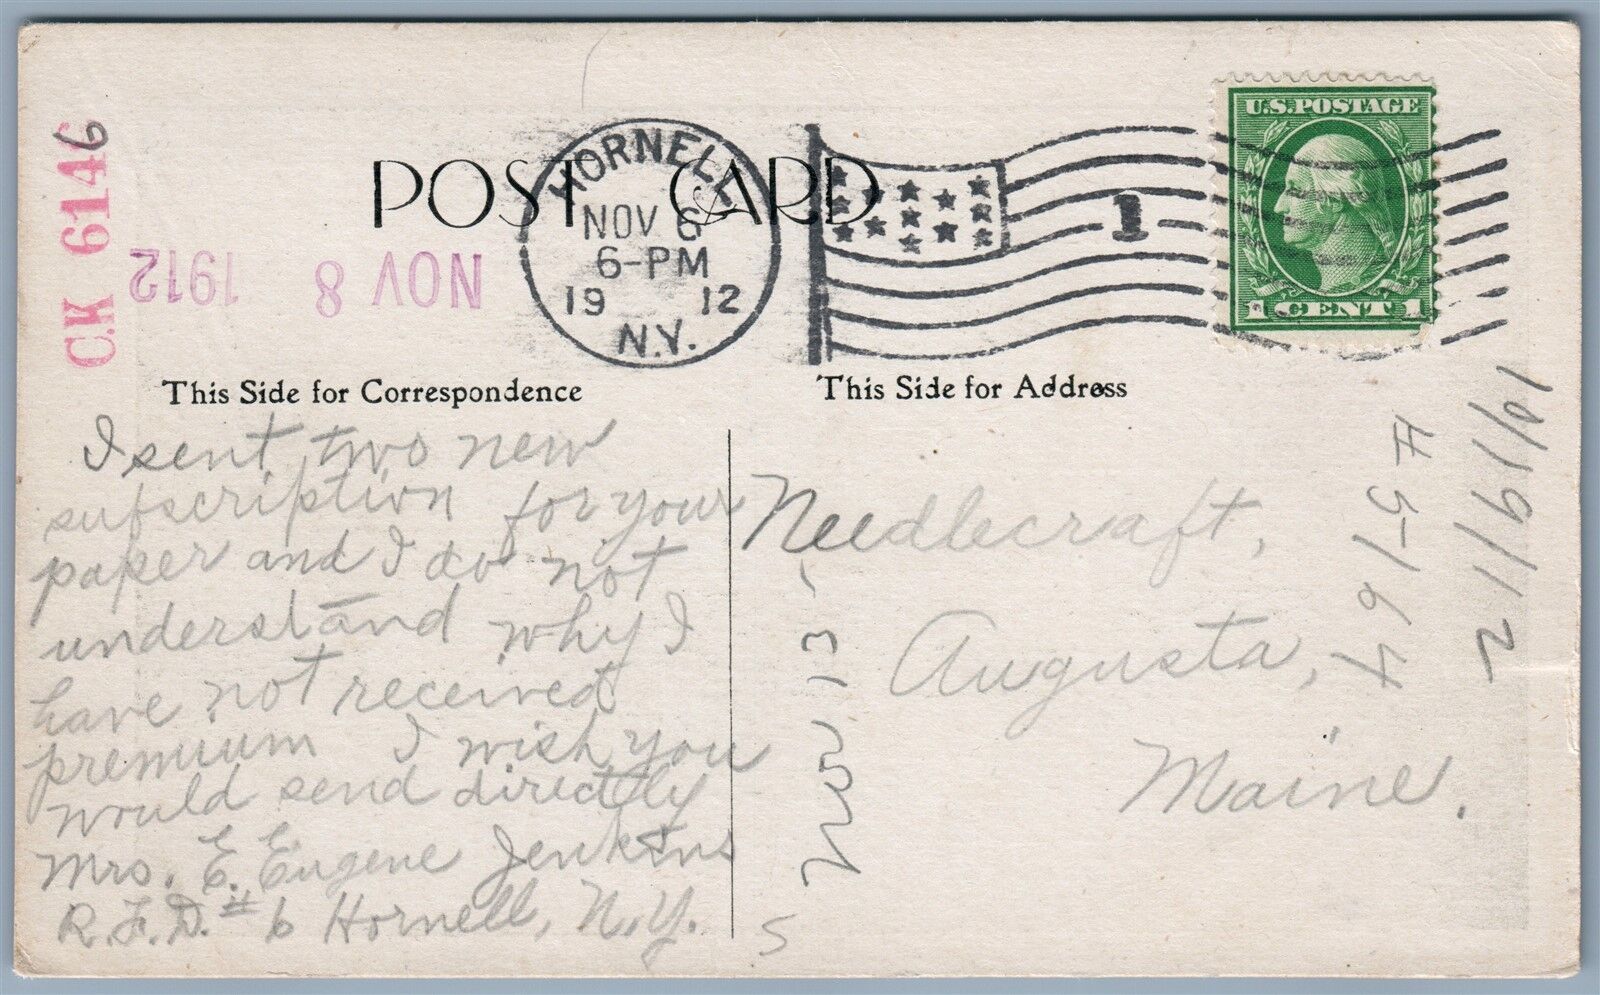 POST CARD
HORNELL
NOV 6
6-PM
19 12
N.Y.
1
U.S. POSTAGE
1 CENT 1
CK 6146
NOV 8 1912
This Side for Correspondence
This Side for Address
I sent two new
subscription for your
paper and I do not
understand why I
have not received
premium I wish you
would send directly
Mrs. E. Eugene Jenkins
R.F.D. # 6 Hornell, N.Y.
Needlecraft,
Augusta,
Maine.
Nov 12
S